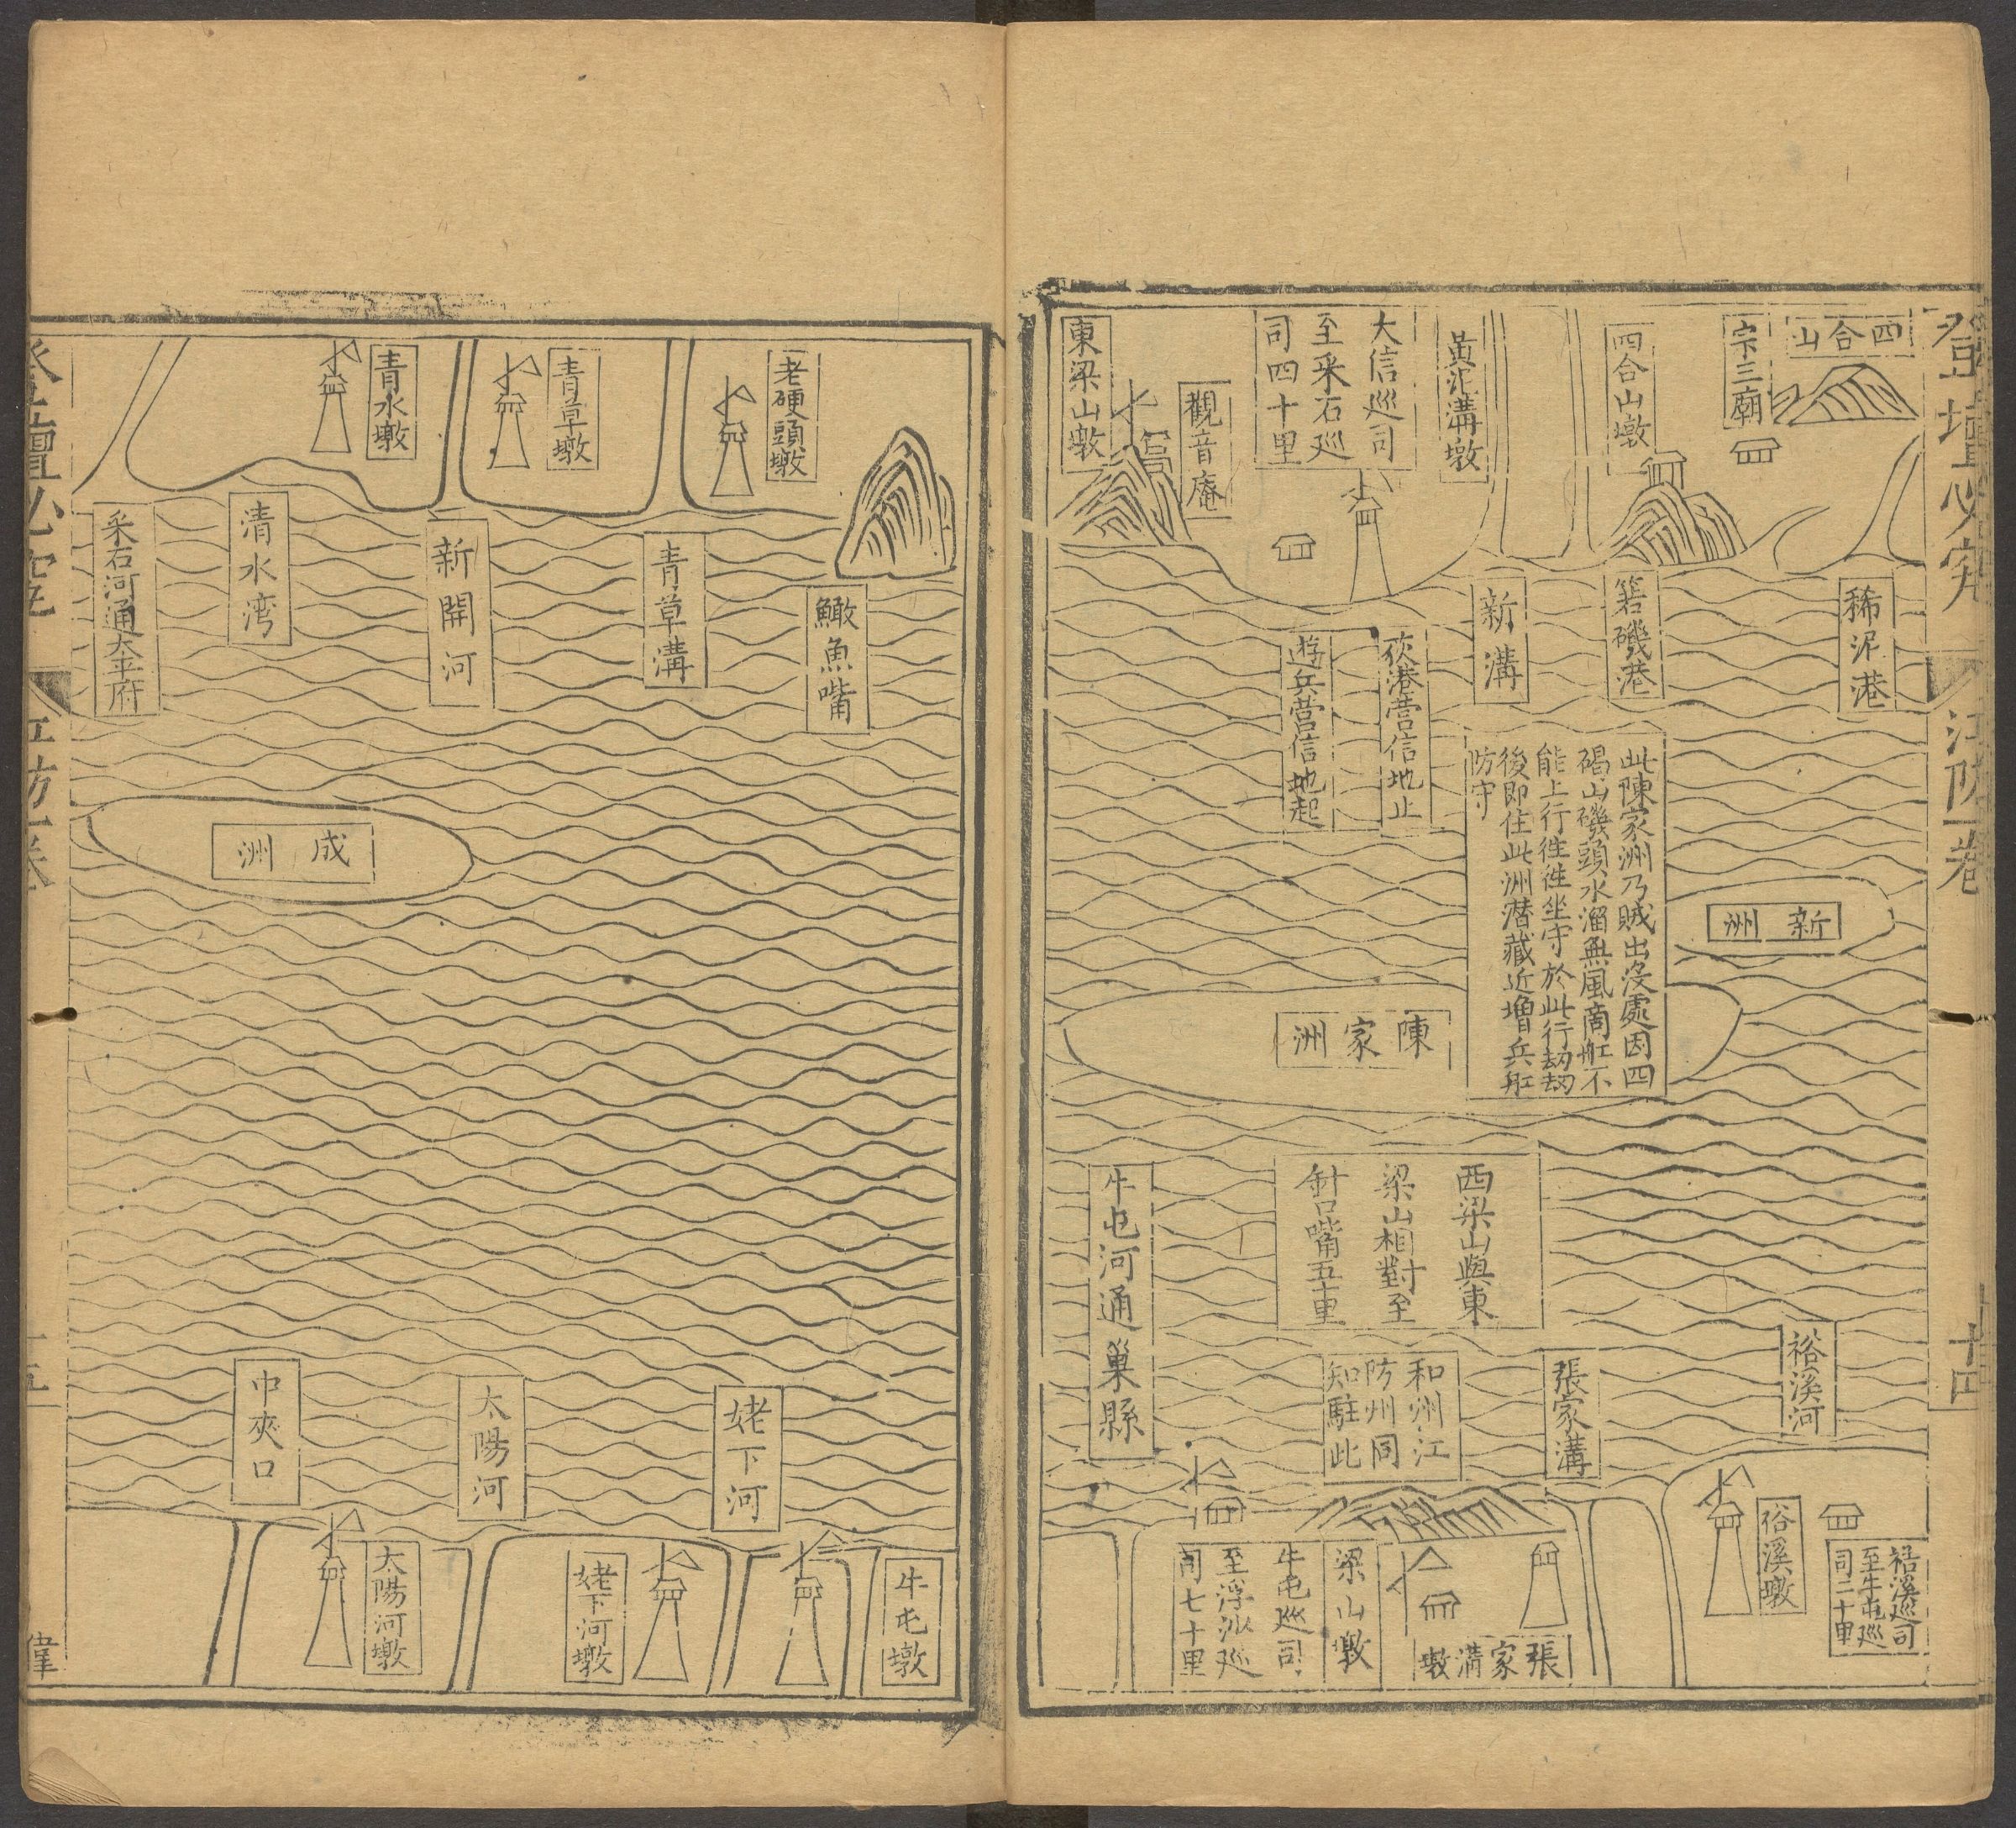 登壇必究
江防一卷
十四
四合山
宗三廟
四合山墩
黃泥溝墩
大信巡司
至采石巡
司四十里
觀音庵
東梁山墩
稀泥港
箬磯港
新溝
荻港營信地止
遊兵營信地起
新洲
此陳家洲乃賊出沒處因四
碣山磯頭水溜無風商舡不
能上行徃徃坐守於此行劫劫
後即住此洲潜藏近增兵舡
防守
陳家洲
西梁山與東
梁山相對至
針口嘴五十里
牛屯河通巢縣
裕溪河
張家溝
和州江
防州同
知駐此
裕溪巡司
至牛屯巡
司二十里
俗溪墩
張家溝墩
梁山墩
牛屯巡司
至浮沙巡
司七十里
老硬頭墩
青草墩
青水墩
鱤魚嘴
青草溝
新開河
清水湾
采石河通太平府
成洲
姥下河
太陽河
中夾口
牛屯墩
姥下河墩
太陽河墩
登壇必究
江防一卷
十五
偉